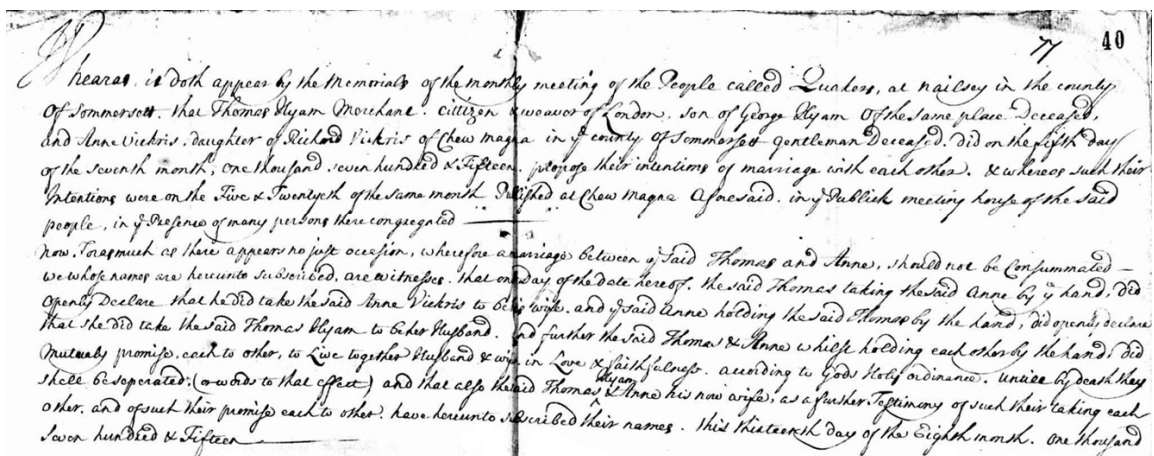 77 40
Wheareas, it doth appear by the Memorials of the monthly meeting of the People called Quakers, at nailsey in the county
Of Sommersett. that Thomas Hyam Merchant. Cittizen & weavor of London, son of George Hyam Of the same place Deceased,
and Anne Vickris, daughter of Richard Vickris of Chew magna in ye county of Sommersett gentleman Deceased. did on the fifth day
of the seventh month, One thousand seven hundred & Fifteen. propose their intentions of marriage with each other. & whereas such their
Intentions were on the Five & Twentyeth of the same month Published at Chew Magna Aforesaid. in ye Publick meeting house of the said
people, in ye Presence of many persons there congregated
now, Forasmuch as there appears no just occasion, wherefore a marriage between ye said Thomas and Anne, should not be Consummated —
we whose names are hereunto subscribed, are witnesses. that on ye Day of the date hereof. the said Thomas taking the said Anne by ye hand, did
Openly Declare that he did take the said Anne Vickris to be his wife. and ye said Anne holding the said Thomas by the hand, did openly declare
that she did take the said Thomas Hyam to be her Husband. And further the said Thomas & Anne whilst holding each other by the hand, did
Mutually promise, each to other, to Live together Husband & wife. in Love & faithfulness. according to Gods Holy ordinance. untill by death they
shall be seperated; (or words to that effect) and that also the said Thomas Hyam & Anne his now wife, as a further Testimony of such their taking each
other. and of such their promise each to other. have hereunto subscribed their names. this thirteenth day of the Eighth month. One thousand
Seven hundred & Fifteen